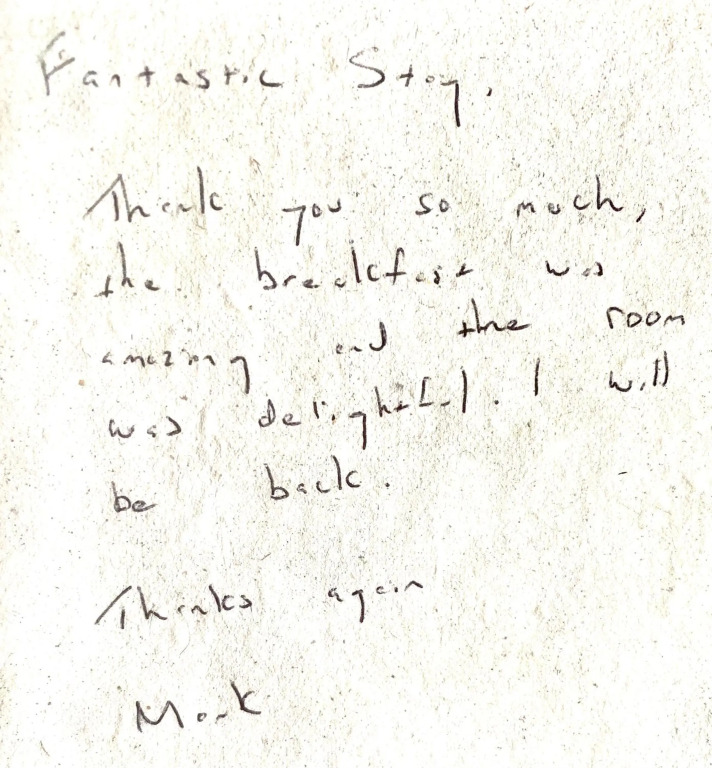 Fantastic Stay,
Thank you so much,
the breakfast was
amazing and the room
was delightful. I will
be back.
Thanks again
Mark